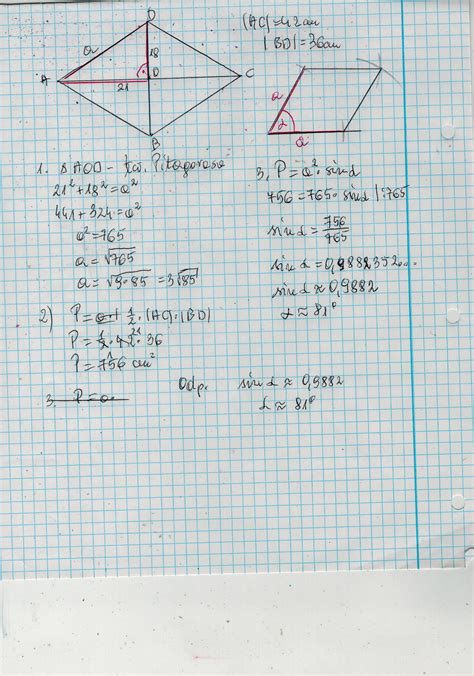 D
|AC| = 42cm
|BD| = 36cm
a
18
A
O
C
21
a
α
a
B
1. ΔAOD - tw. Pitagorasa
21² + 18² = a²
441 + 324 = a²
a² = 765
a = √765
a = √9·85 = 3√85
2) P = 1/2 · |AC| · |BD|
P = 1/2 · 42 · 36
21
P = 756 cm²
3. P = a
3, P = a² · sinα
756 = 765 · sinα |:765
sinα = 756/765
sinα = 0,9882352...
sinα ≈ 0,9882
α ≈ 81°
Odp. sinα ≈ 0,9882
α ≈ 81°